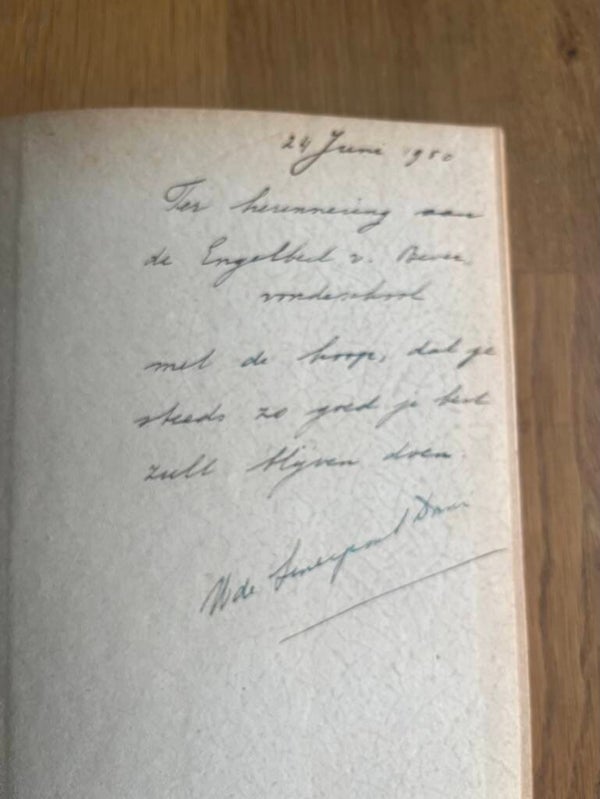 24 Juni 1950
Ter herinnering aan
de Engelbert v. Bever-
vordeschool
met de hoop, dat je
steeds zo goed je best
zult blijven doen.